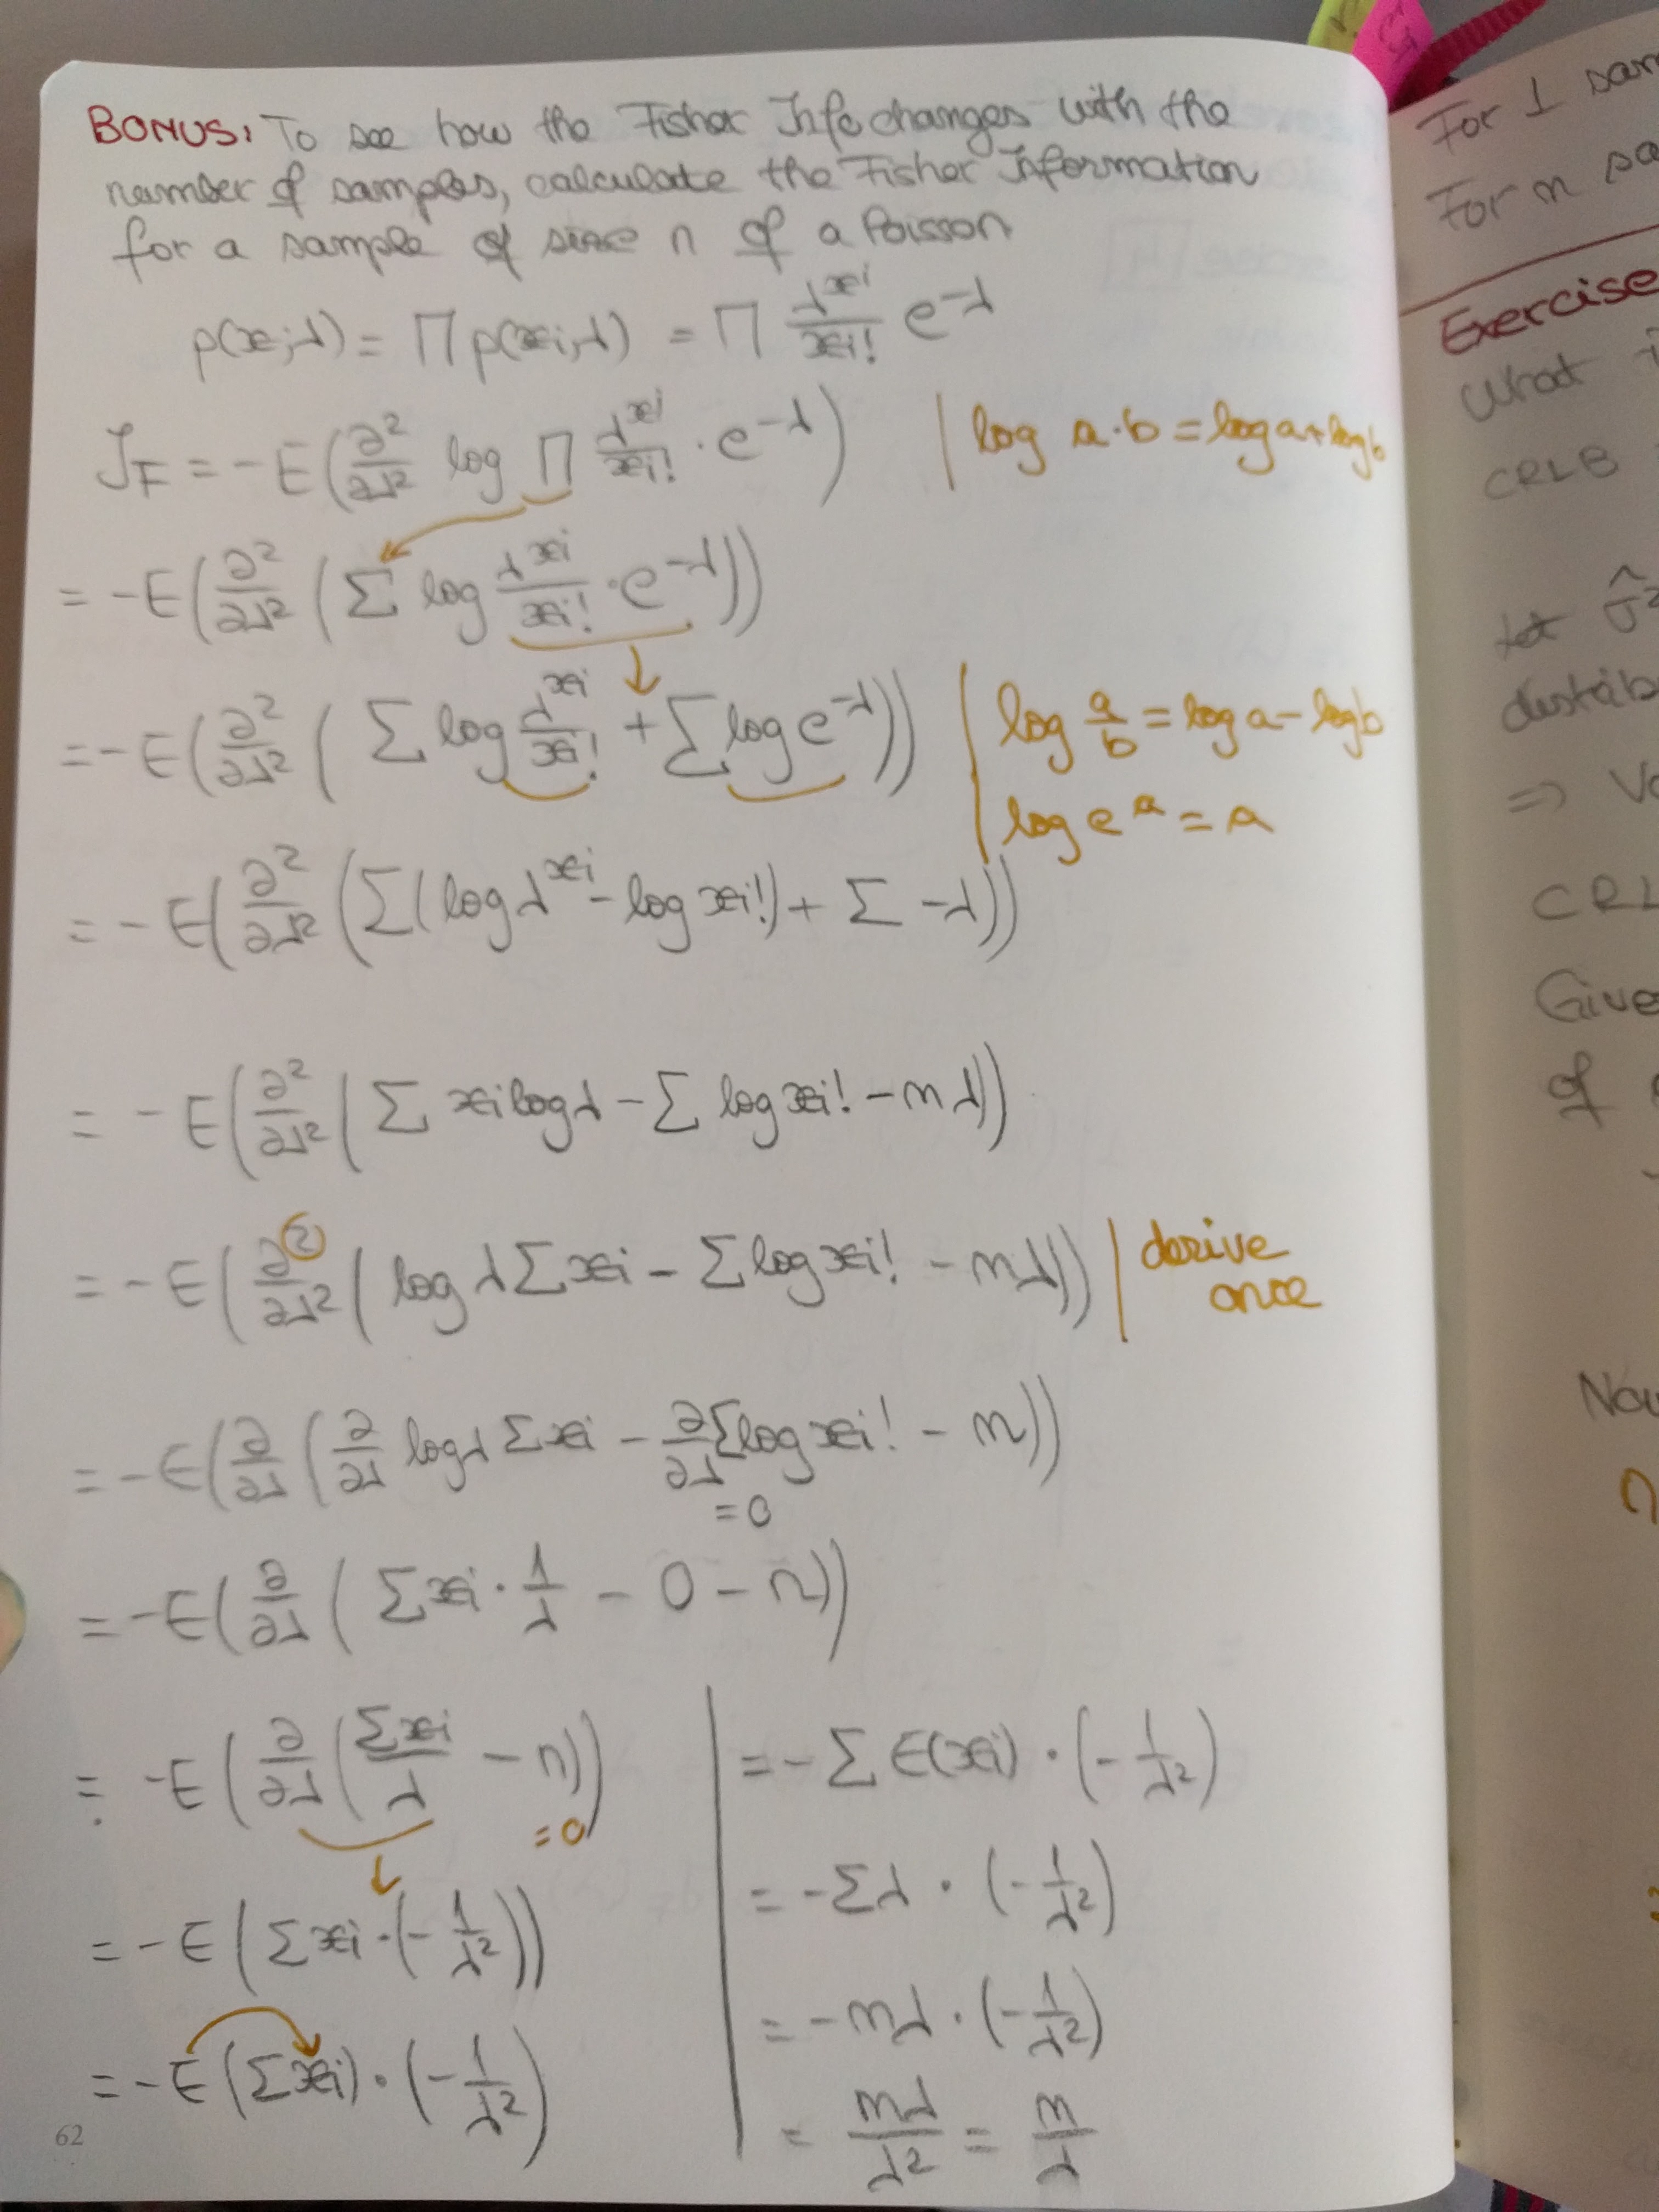 BONUS: To see how the Fisher Info changes with the
number of samples, calculate the Fisher Information
for a sample of size n of a Poisson
p(x;λ) = Π p(xi,λ) = Π λ^xi/xi! e^-λ
J_F = -E(∂²/∂λ² log Π λ^xi/xi! · e^-λ) | log a·b = log a + log b
= -E(∂²/∂λ² (Σ log λ^xi/xi! · e^-λ))
= -E(∂²/∂λ² (Σ log λ^xi/xi! + Σ log e^-λ)) | log a/b = log a - log b
log e^a = a
= -E(∂²/∂λ² (Σ(log λ^xi - log xi!) + Σ -λ))
= -E(∂²/∂λ² (Σ xi log λ - Σ log xi! - nλ))
= -E(∂²/∂λ² (log λ Σ xi - Σ log xi! - nλ)) | derive
once
= -E(∂/∂λ (∂/∂λ log λ Σ xi - ∂/∂λ Σ log xi! - n))
= 0
= -E(∂/∂λ (Σ xi · 1/λ - 0 - n))
= -E(∂/∂λ (Σxi/λ - n))
= 0
= -E(Σ xi · (-1/λ²))
= -E(Σ xi) · (-1/λ²)
= -Σ E(xi) · (-1/λ²)
= -Σλ · (-1/λ²)
= -nλ · (-1/λ²)
= nλ/λ² = n/λ
62
For 1 sam
For n sa
Exercise
What i
CRLB
let σ̂²
distrib
=> Va
CRL
Give
of
Now